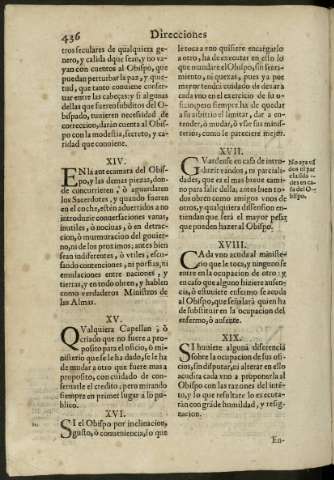 436
Direcciones
tros seculares de qualquiera ge-
nero, y calida que sean, y no va-
yan con cuentos al Obispo, que
puedan perturbar la paz, y quie-
tud, que tanto conviene conser-
uar entre las cabeças; y si algunas
dellas que fueren subditos del O-
bispado, tuuieren necesidad de
correccion, daràn cuenta al Obis-
po con la modestia, secreto, y ca-
ridad que conviene.
XIV.
EN la antecamara del Obis-
po, y las demas piezas, don-
de concurrieren, ò aguardaren
los Sacerdotes, y quando fueren
en el coche, estèn aduertidos a no
introducir conuersaciones vanas,
inutiles, ò nocivas, ò en detrac-
cion, ò murmuracion del gouier-
no, ni de los proximos; antes bien
sean indiferentes, ò vtiles, escu-
sando contenciones, ni porfias, ni
emulaciones entre naciones, y
tierras, y en todo obren, y hablen
como verdaderos Ministros de
las Almas.
XV.
QValquiera Capellan, ò
criado que no fuere a pro-
posito para el oficio, ò mi-
nisterio que se le ha dado, se le ha
de mudar a otro que fuere mas a
proposito, con cuidado de con-
seruarle el credito, pero mirando
siempre en primer lugar a lo pu-
blico.
XVI.
SI el Obispo por inclinacion,
gusto, ò conveniencia, lo que
le toca a vno quisiere encargarlo
a otro, ha de executar en ello lo
que mandare el Obispo, sin senti-
miento, ni quexas, pues ya por
mayor tendrà cuidado de dexar a
cada vno en el exercicio de su o-
ficio, pero siempre ha de quedar
a su arbitrio el limitar, dar a en-
tender, ò mudar, ò vsar sus minis-
terios, como le pareciere mejor.
XVII.
GVardense en caso de intro-
ducir vandos, ni parciali-
dades, que es el mas breue cami-
no para salir della; antes bien to-
dos obren como amigos vnos de
otros, y qualquiera dissension en-
tiendan que serà el mayor pesar
que pueden hazer al Obispo.
XVIII.
CAda vno acuda al ministe-
rio que le toca, y ninguno se
entre en la ocupacion de otro: y
en caso que alguno hiziere ausen-
cia, ò estuuiere enfermo se acuda
al Obispo, que señalarà quien ha
de substituir en la ocupacion del
enfermo, ò ausente.
XIX.
SI huuiere alguna diferencia
sobre la ocupacion de sus ofi-
cios, sin disputar, ni alterar en ello
acudirà cada vno a proponerla al
Obispo con las razones del inte-
to, y lo que resultare lo executa-
ràn con grãde humildad, y resig-
nacion.
En-